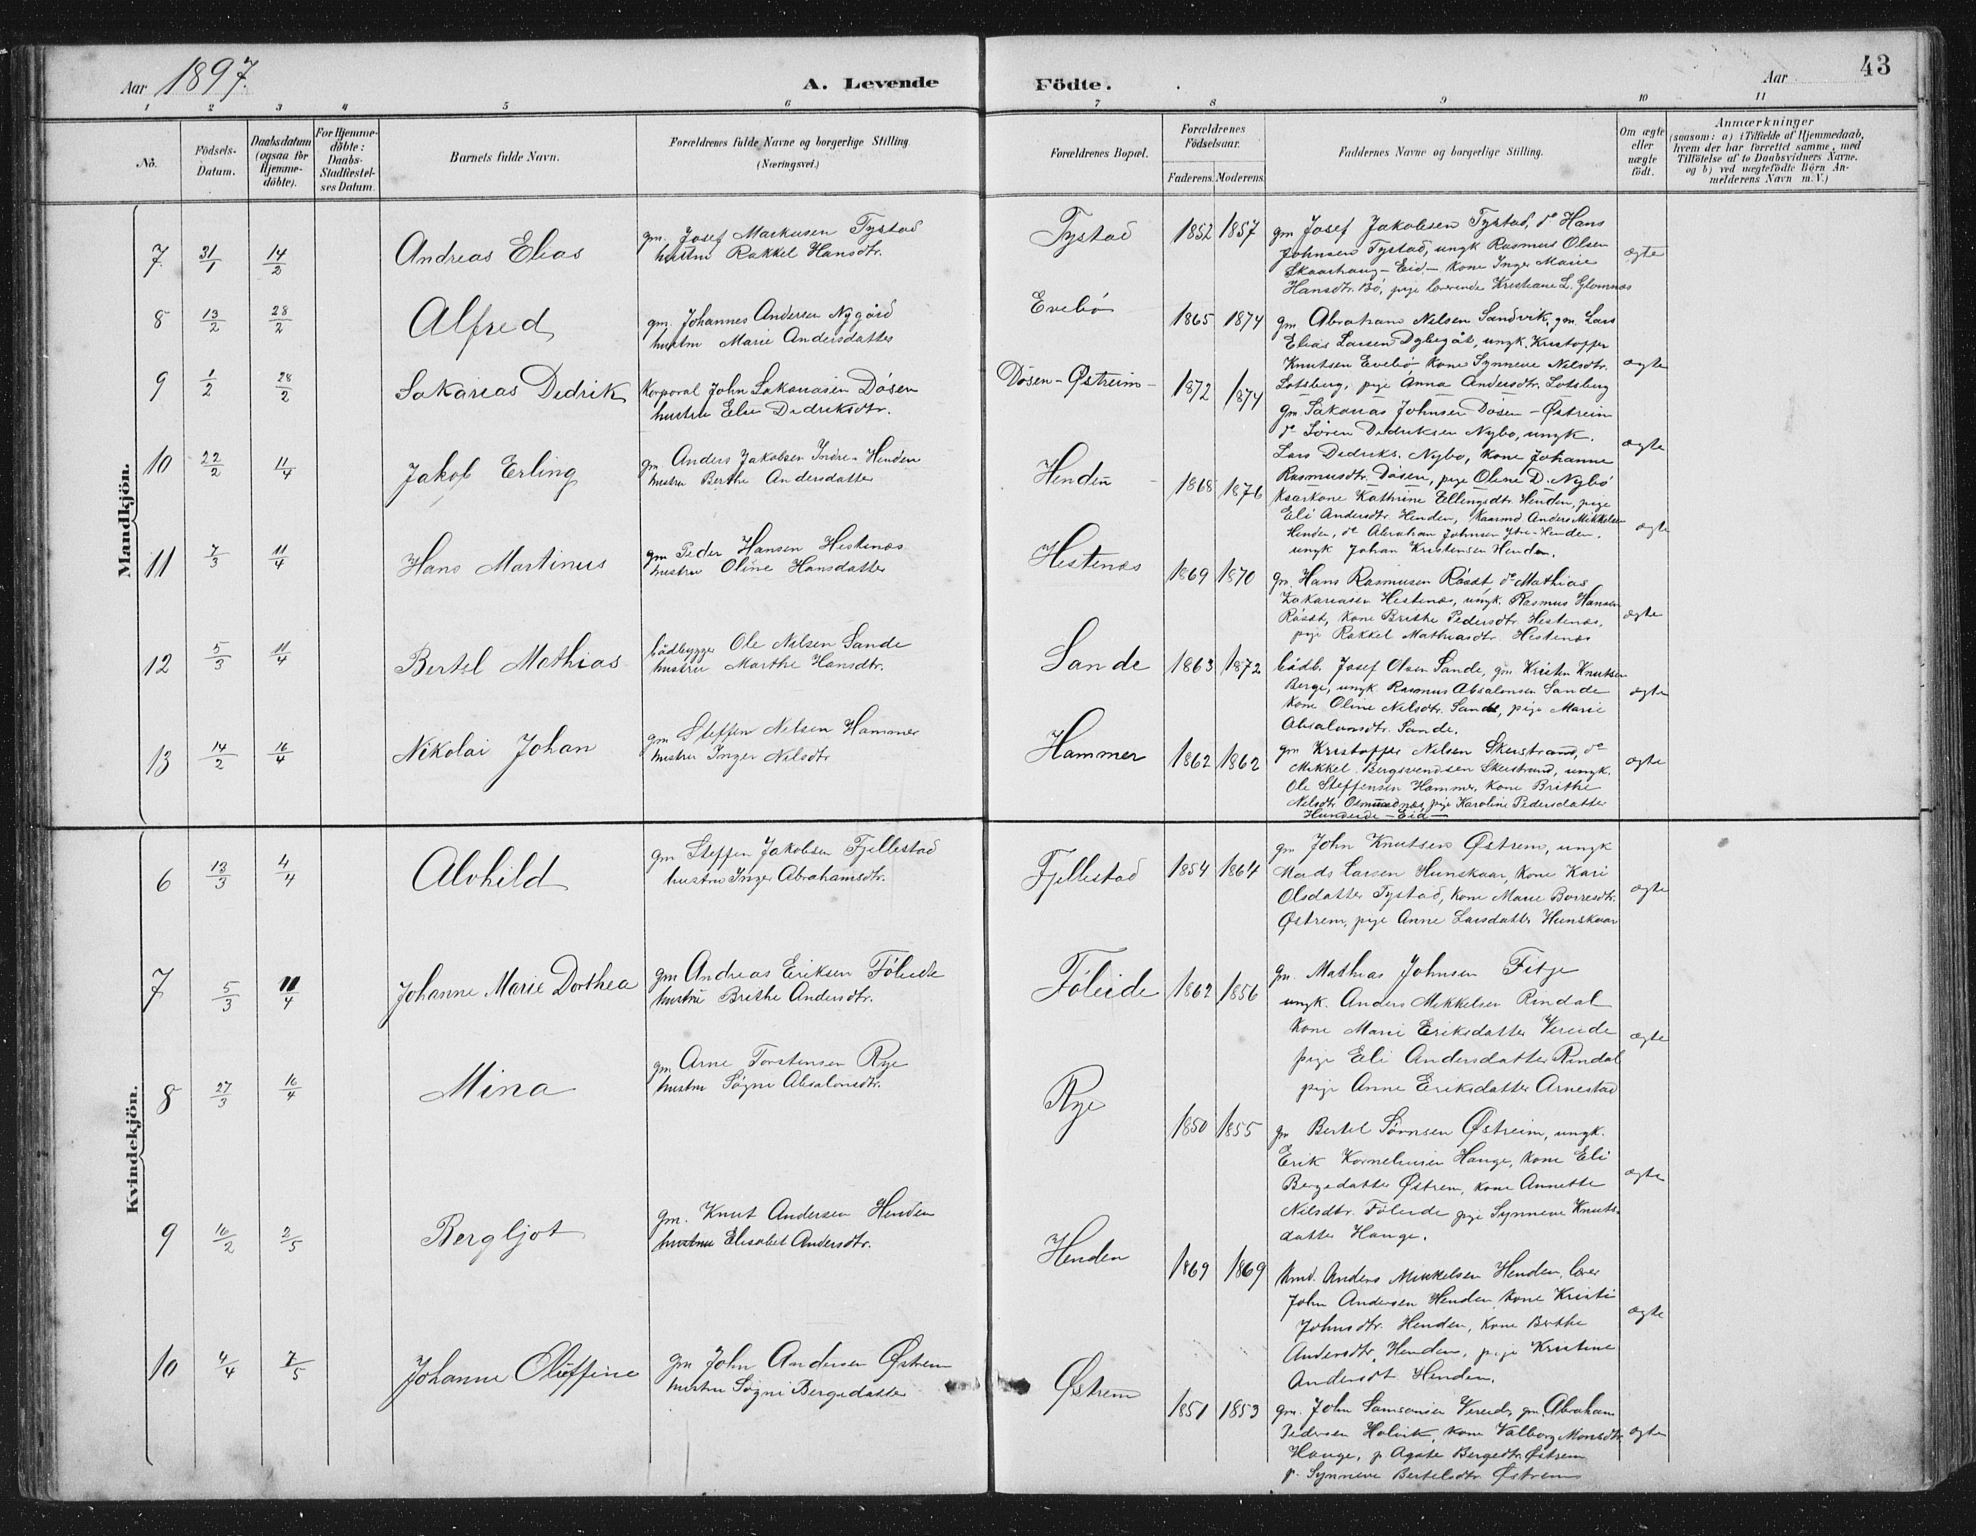 Aar 1897. A. Levende Födte. Aar 43
1 2 3 4 5 6 7 8 9 10 11
No.
Födsels-Datum.
Daabsdatum (ogsaa for Hjemme-döbte).
For Hjemme-döbte: Daabs-Stadfæstel-ses Datum.
Barnets fulde Navn.
Forældrenes fulde Navne og borgerlige Stilling (Næringsvei.)
Forældrenes Bopæl.
Forældrenes Födselsaar.
Faderens. Moderens.
Faddernes Navne og borgerlige Stilling.
Om ægte eller uægte födt.
Anmærkninger
(saasom: a) i Tilfælde af Hjemmedaab,
hvem der har forrettet samme, med
Tilföielse af to Daabsvidners Navne.
og b) ved uægtefödte Börn An-
melderens Navn m.V.)
Mandkjön.
7 31/1 14/2 Andreas Elias
gm. Josef Markusen Tystad
hustru Rakkel Hansdtr.
Tystad 1852 1857
gm Josef Jakobsen Tystad, do Hans
Johnsen Tystad, ungk Rasmus Olsen
Skaarhaug - Eid - kone Inger Marie
Hansdtr. Bö, pige lærerinde Kristiane L. Glomnes
ægte
8 13/2 28/2 Alfred
gm. Johannes Andersen Nygård
hustru Marie Andersdatter
Evebø 1865 1874
gm Abraham Nilsen Sandvik, gm. Lars
Elias Larsen, ungk. Kristoffer
Knutsen Evebø kone Synneve Nilsdtr.
Lotsberg, pige Anna Andersdtr. Lotsberg
ægte
9 1/2 28/2 Sakarias Dedrik
Korporal John Sakariasen Døsen
hustru Else Dedriksdtr.
Døsen - Østreim - 1872 1874
gm Sakarias Johnsen Døsen - Østreim
do Søren Dedriksen Nybø, ungk.
Lars Dedriks. Nybø, kone Johanne
Rasmusdtr. Døsen, pige Oline D. Nybö
ægte
10 22/2 11/4 Jakob Erling
gm Anders Jakobsen Indre-Henden
hustru Berthe Andersdatter
Henden 1868 1876
Kaarkone Kathrine Ellingsdtr. Henden, pige
Eli Andersdtr. Henden, Kaarmd. Anders Mikkelsen
Henden, do Abraham Johnsen Ytre-Henden.
ungk Johan Kristensen Henden.
ægte
11 7/3 11/4 Hans Martinus
gm Peder Hansen Hestenæs
hustru Oline Hansdatter
Hestenæs 1869 1870
gm. Hans Rasmusen Råsdt, do Mathias
Zakariasen Hestenæs, ungk. Rasmus Hansen
Råsdt, kone Brithe Pedersdtr. Hestenæs,
pige Rakkel Mathiasdtr. Hestenæs
ægte
12 5/3 11/4 Bertel Mathias
bådbygge Ole Nilsen Sande
hustru Marthe Hansdtr.
Sande 1863 1872
bådb. Josef Olsen Sande, gm Kristen Knutsen
Berge, ungk. Rasmus Absalonsen Sande
kone Oline Nilsdtr. Sande, pige Marie
Absalonsdtr. Sande.
ægte
13 14/2 16/4 Nikolai Johan
gm Steffen Nilsen Hammer
hustru Inger Nilsdtr
Hammer 1862 1862
gm Kristoffer Nilsen Skeistrand, do
Mikkel Bergsvendsen Skeistrand, ungk.
Ole Steffensen Hammer, kone Brithe
Nilsdtr. Osmundnes pige Karoline Pedersdatter
Hundeide - Eid -
ægte
Kvindekjön.
6 13/3 4/4 Alvhild
gm Steffen Jakobsen Fjellestad
hustru Inger Abrahamsdtr.
Fjellestad 1854 1864
gm John Knutsen Østrem, ungk
Mads Larsen Hunskaar, kone Kari
Olsdatter Tystad, kone Marie Borresdtr.
Østrem, pige Anne Larsdatter Hunskaar
ægte
7 5/3 11/4 Johanne Marie Dorthea
gm Andreas Eriksen Føleide
hustru Brithe Andersdtr.
Føleide 1862 1856
gm. Mathias Johnsen Fitje
ungk. Anders Mikkelsen Rindal
kone Marie Eriksdatter Vereide
pige Eli Andersdatter Rindal
pige Anne Eriksdatter Arnestad
ægte
8 27/3 16/4 Mina
gm Arne Torstensen Rye
hustru Søgni Absalonsdtr.
Rye 1850 1855
gm Bertel Sørnsen Østreim, ungk.
Erik Korneliusen Hauge, kone Eli
Bergedatter Østrem, kone Annette
Nilsdtr. Føleide pige Synneve Knuts-
datter Hauge.
ægte
9 16/2 2/5 Bergljot
gm. Knut Andersen Henden
hustru Elisabet Andersdtr.
Henden 1869 1869
Kmd. Anders Mikkelsen Henden, lærer
John Andersen Henden, kone Kristi
Johnsdtr. Henden, kone Berthe
Andersdtr. Henden, pige Kristine
Andersdt Henden.
ægte
10 4/4 2/5 Johanne Oluffine
gm John Andersen Østrem
hustru Søgni Bergedatter
Østrem 1851 1853
gm. John Samsonsen Vereide, gm. Abraham
Pedersen Holvik, kone Valborg Monsdtr.
Hauge, p Agate Bergedtr. Østrem
p. Synneve Bertelsdtr. Østrem
ægte